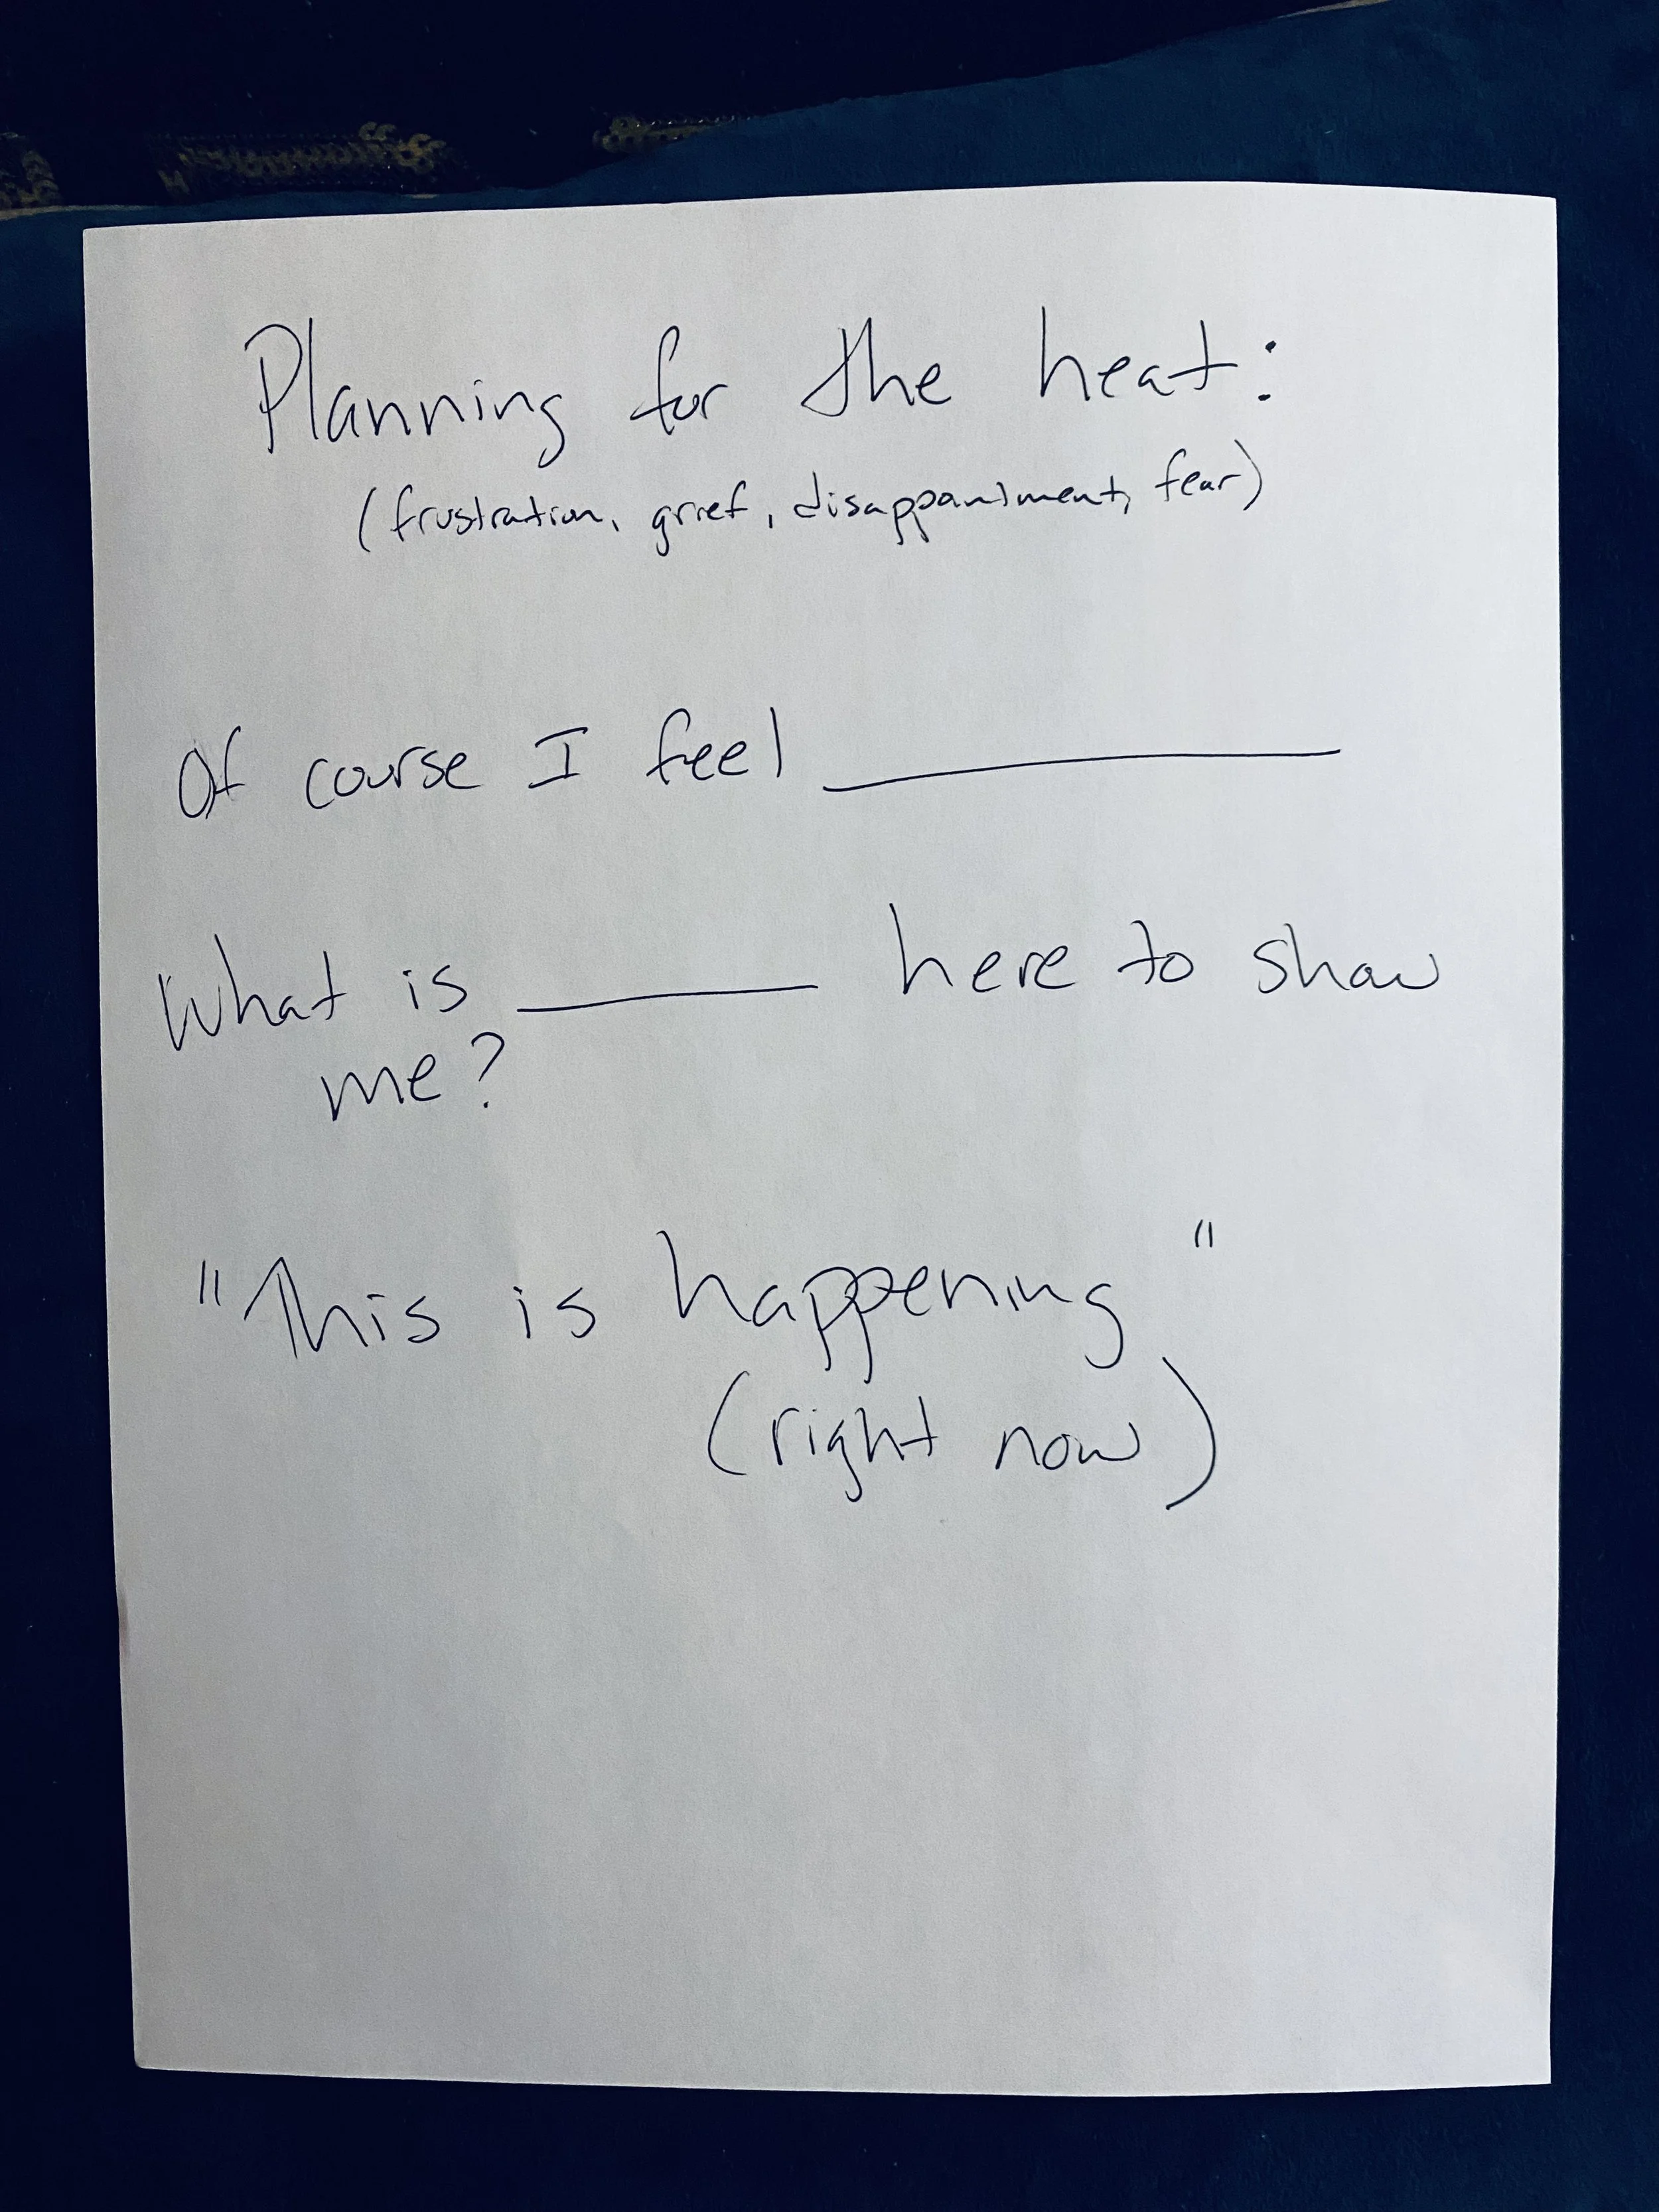 Planning for the heat:
(frustration, grief, disappointment, fear)
Of course I feel ______
What is ______ here to show
me?
"This is happening"
(right now)